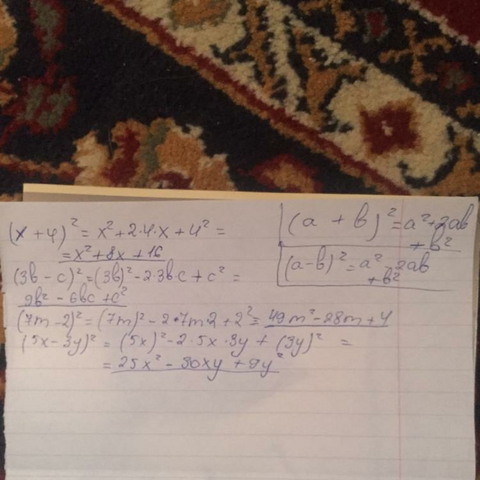 (x + 4)² = x² + 2·4·x + 4² =
= x² + 8x + 16
(3b - c)² = (3b)² - 2·3b·c + c² =
9b² - 6bc + c²
(7m - 2)² = (7m)² - 2·7m·2 + 2² = 49m² - 28m + 4
(5x - 3y)² = (5x)² - 2·5x·3y + (3y)² =
= 25x² - 30xy + 9y²
(a + b)² = a² + 2ab
+ b²
(a - b)² = a² - 2ab
+ b²